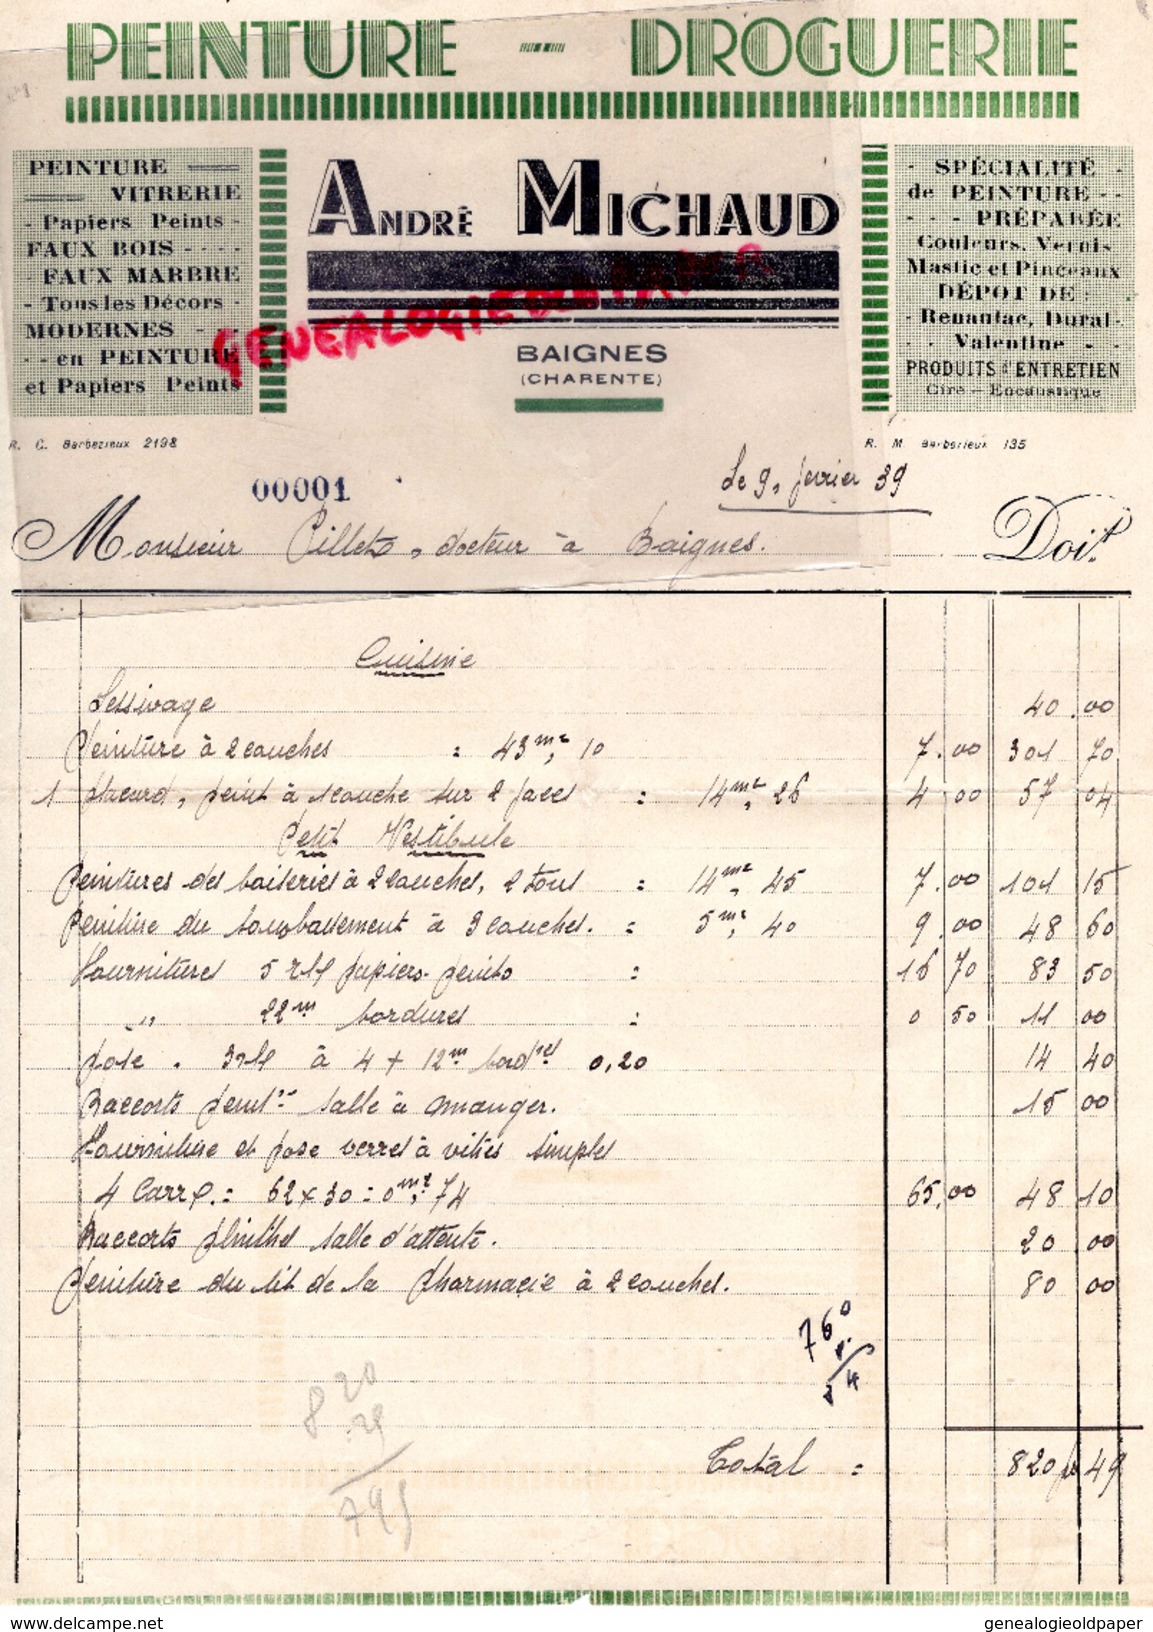 PEINTURE - DROGUERIE
PEINTURE
VITRERIE
- Papiers Peints -
FAUX BOIS - - - -
- FAUX MARBRE
- Tous les Décors -
MODERNES - -
- - en PEINTURE
et Papiers Peints
ANDRÉ MICHAUD
GENEALOGIE
BAIGNES
(CHARENTE)
- SPÉCIALITÉ -
de PEINTURE - -
- - - PRÉPARÉE
Couleurs, Vernis
Mastic et Pinceaux
DÉPOT DE :
- Renaulac, Dural -
- - Valentine - -
PRODUITS d'ENTRETIEN
Cire - Encaustique
R. C. Barbezieux 2198
R. M. Barbezieux 135
00001
Le 9, fevrier 39
Monsieur Pillet, docteur à Baignes. Doit
Cuisine
Lessivage 40.00
Peinture à 2 couches = 43m2, 10 7.00 301 70
1 placard, peint à 1 couche sur 2 faces = 14m2, 26 4 00 57 04
Petit Vestibule
Peintures des boiseries à 2 couches, 2 tons = 14m2, 45 7.00 101 15
Peinture du soubassement à 3 couches. = 5m2, 40 9.00 48 60
Fournitures 5 rlx papiers-peints = 16 70 83 50
" 22m bordures = 0 50 11 00
pose . 3 rlx à 4 + 12m bordres 0,20 14 40
Raccorts peint. salle à manger. 15 00
Fourniture et pose verres à vitres simples
4 Carr. = 62 x 30 = 0m2, 74 65.00 48 10
Raccorts plinthes salle d'attente. 20 00
Peinture du lit de la pharmacie à 2 couches. 80 00
760
24
820
25
795
Total = 820 fr 49
delcampe.net
genealogieoldpaper